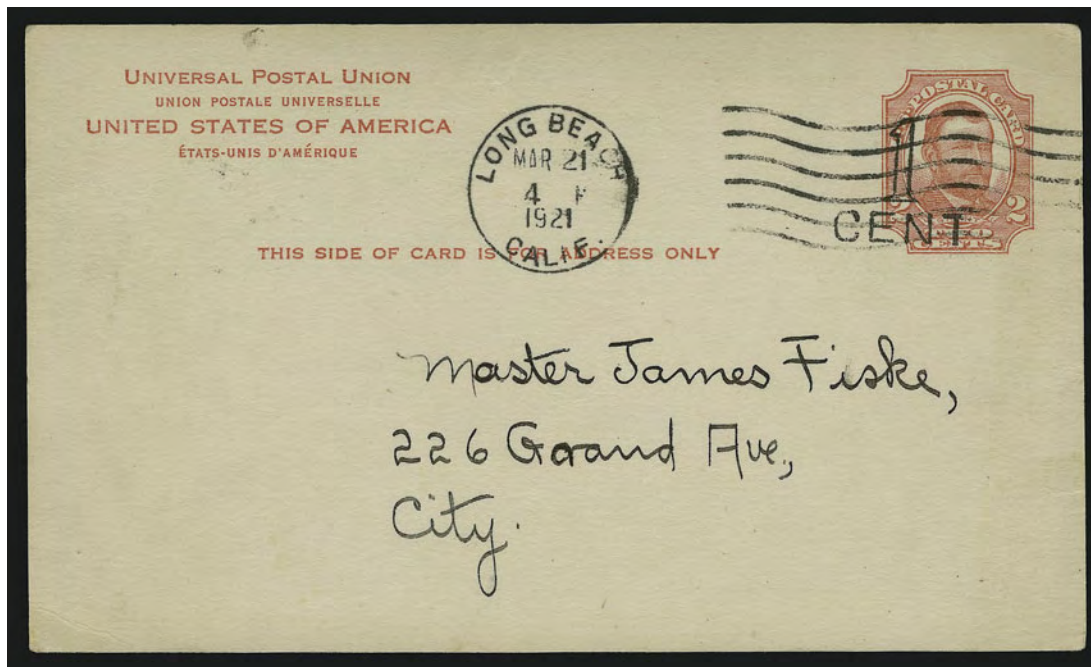 UNIVERSAL POSTAL UNION
UNION POSTALE UNIVERSELLE
UNITED STATES OF AMERICA
ÉTATS-UNIS D'AMÉRIQUE
LONG BEACH
MAR 21
4 P
1921
CALIF.
POSTAL CARD
1
CENT
2 2
CENTS
THIS SIDE OF CARD IS FOR ADDRESS ONLY
Master James Fiske,
226 Grand Ave,
City.